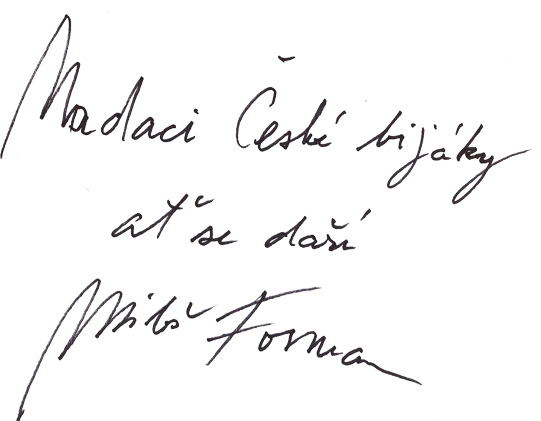 Nadaci České bijáky
ať se daří
Miloš Forman